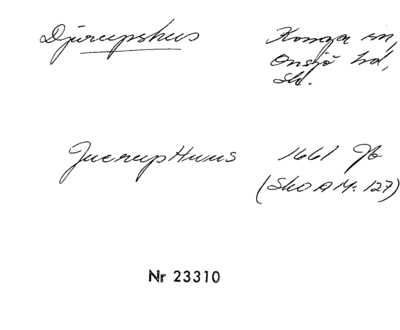 Djurupshus Konga sn,
Onsjö hd,
Sk.
Juerup Huus 1661 Jb
(Skoa M: 127)
Nr 23310